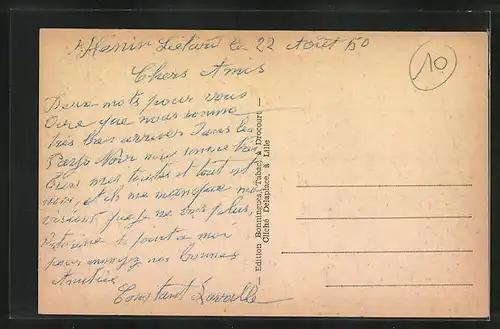 Hénin Liétard le 22 Août 50
10
Chers Amis
Deux mots pour vous
Dire que nous somme
très bien arriver Dans les
Pays Noir nous somme
tout est
noir, et il me manque
que je ne vois plus,
point a moi
pour envoyez nos bonnes
Amitiés
Constant Lavalle
— Edition Bonningues (Tabac) à Drocourt —
Cliché Delaplace, à Lille